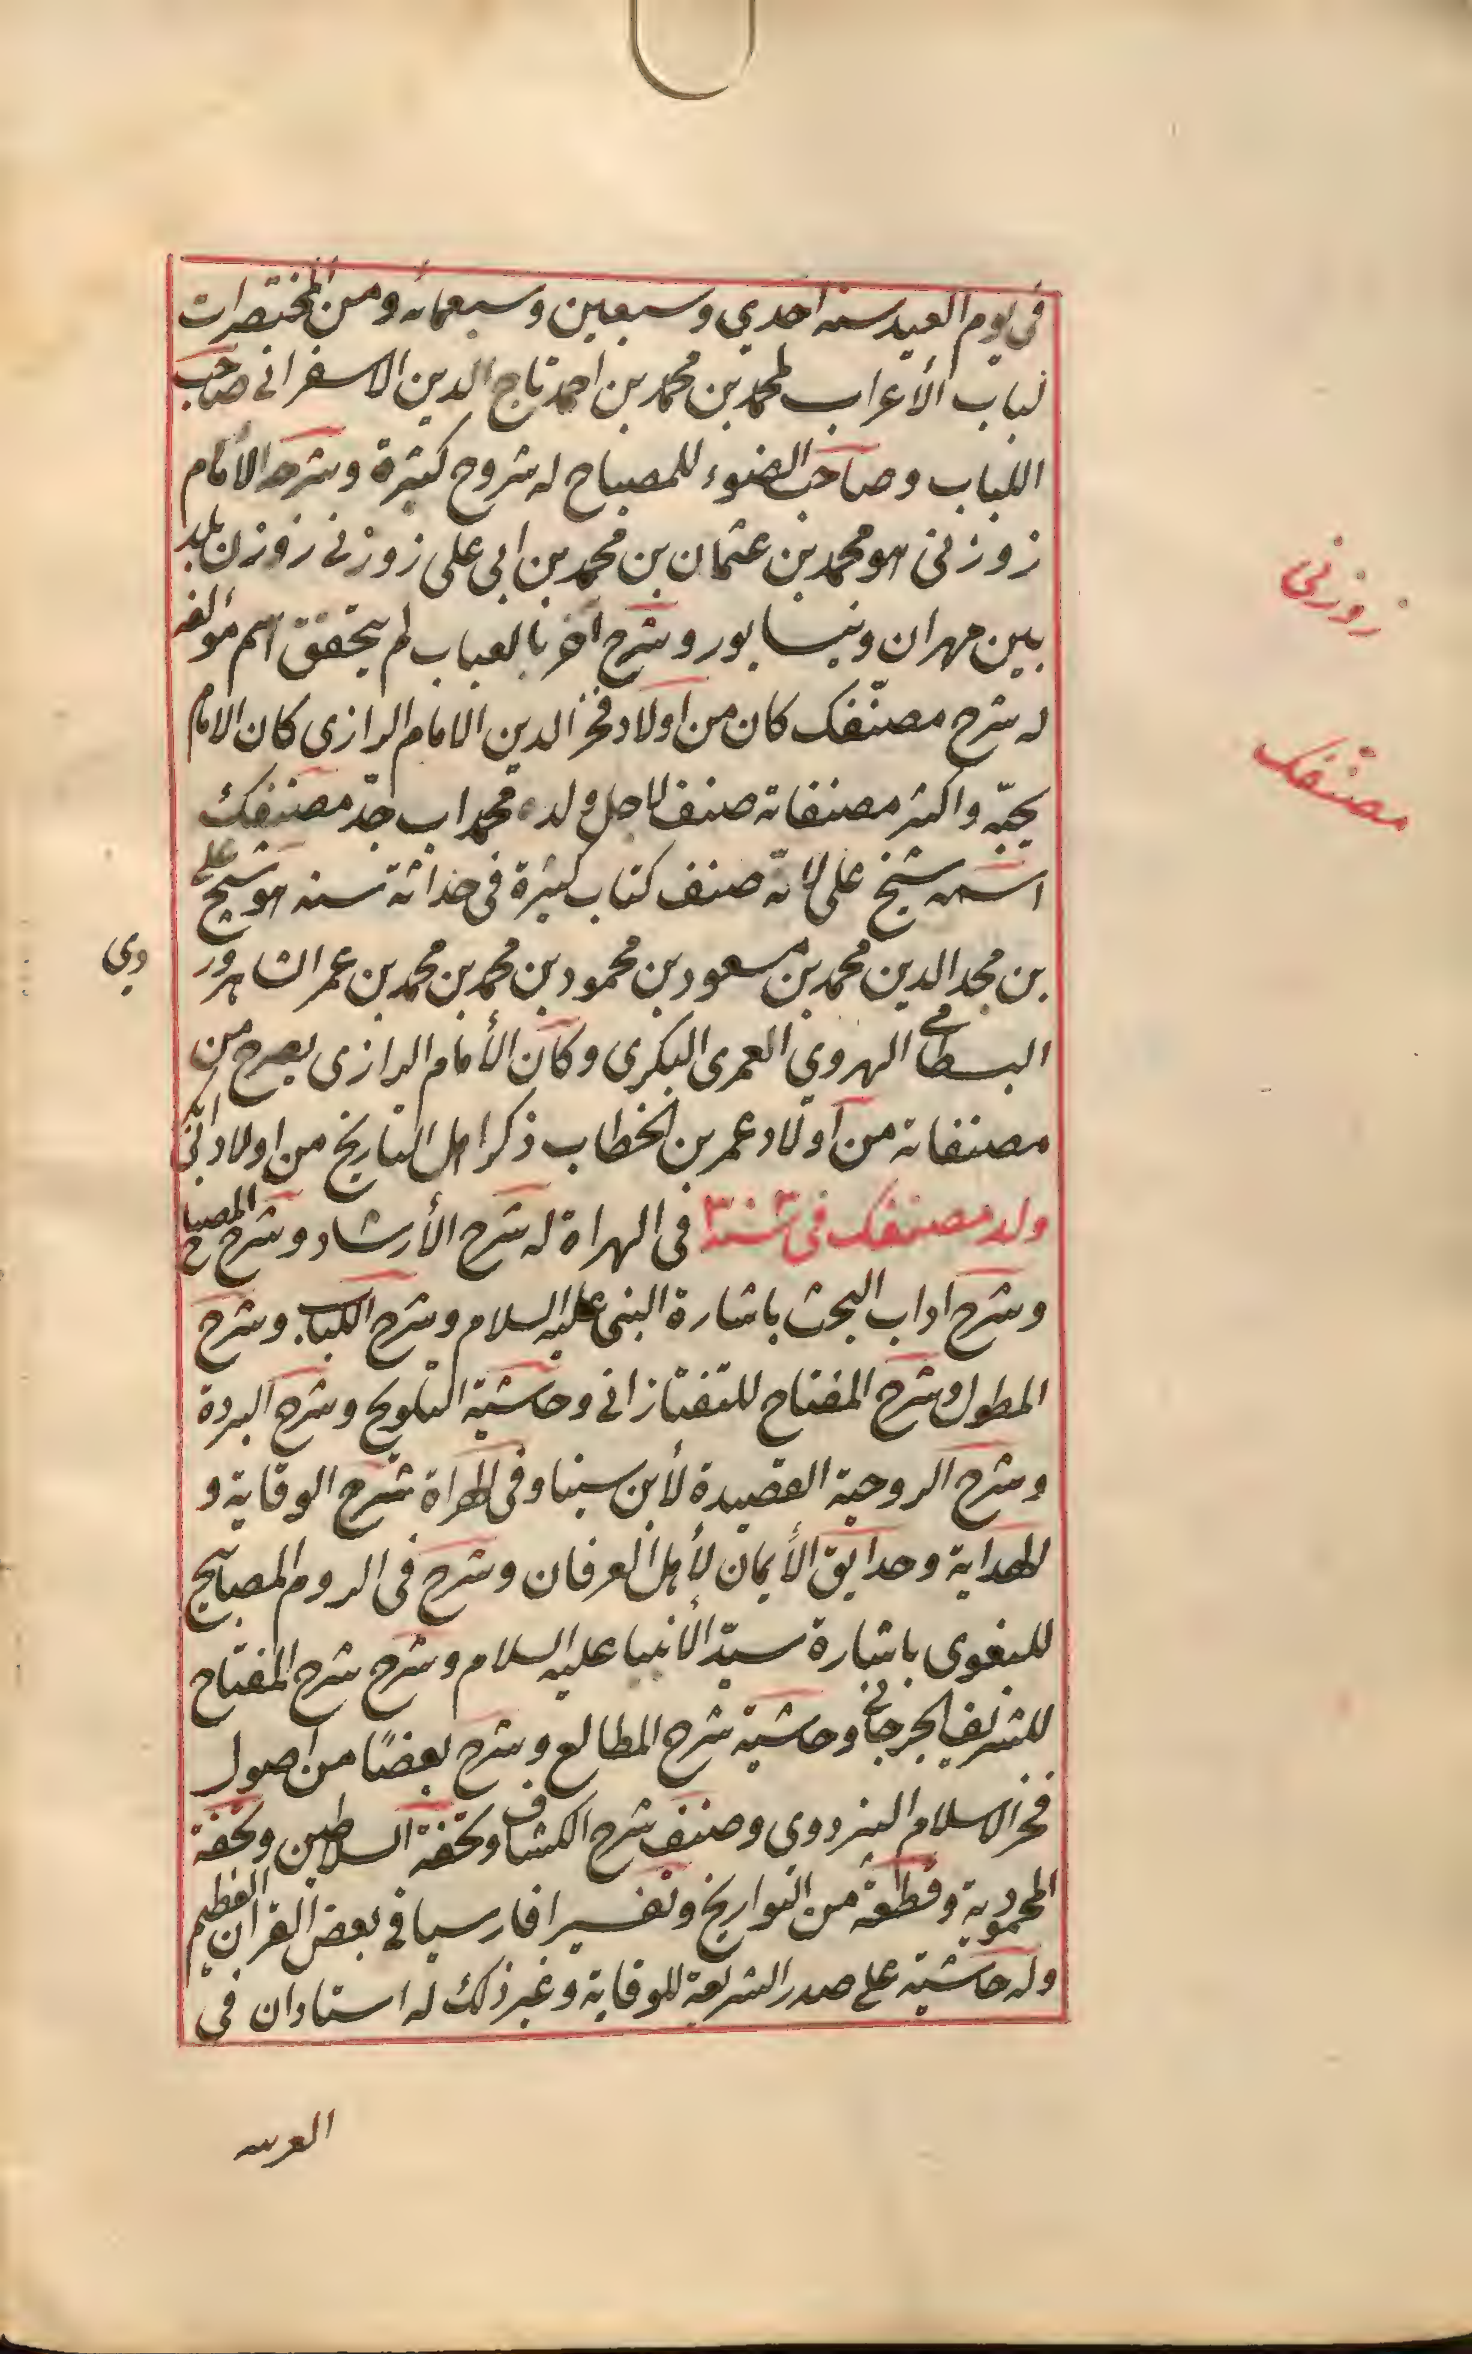 في يوم العيد سنه احدي وسبعين وسبعمائه ومن المختصرات
لباب الأعراب لمحمد بن محمد بن احمد تاج الدين الاسفراني صاحب
اللباب وصاحب الضوء للمصباح له شروح كثيرة وشرحه الأمام
زوزني هو محمد بن عثمان بن محمد بن ابي علي زوزني زوزن بلد
بين مهران ونيسابور وشرح اخر بالعباب لم يتحقق اسم مؤلفه
له شرح مصنّفك كان من اولاد فخر الدين الامام الرازي كان الامام
يحبّه واكثر مصنفاته صنف لاجل ولده محمد اب جدّ مصنفك
اسمه شيخ علي لانّه صنف كتاب كثيرة في حداثة سنه هو شيخ علي
بن مجد الدين محمد بن مسعود بن محمود بن محمد بن محمد بن عمر الشاهرور
دي
البسطامي الهروي العمري البكري وكان الأمام الرازي يصرح من
مصنفاته من اولاد عمر بن الخطاب ذكر اهل التاريخ من اولاد ابي بكر
ولد مصنفك في سنة في الهراة له شرح الأرشاد وشرح المصباح
وشرح اداب البحث باشارة النبي عليه السلام وشرح اللباب وشرح
المطول وشرح المفتاح للتفتازاني وحاشية التلويح وشرح البردة
وشرح الروحية القصيدة لأبن سينا وفي الهراة شرح الوقاية و
الهداية وحدايق الأيمان لأهل العرفان وشرح في الروم المصابيح
للبغوي باشارة سيّد الأنبيا عليه السلام وشرح شرح المفتاح
للشريف الجرجاني وحاشية شرح المطالع وشرح بعضًا من اصول
فخر الاسلام البزدوي وصنف شرح الكشاف وتحفة السلاطين وتحفة
المحمودية وقطعة من التواريخ وتفسيرا فارسيا في بعض القران العظيم
وله حاشية علي صدر الشريعة للوقاية وغير ذلك له استادان في
زوزني
مصنفك
العربيه